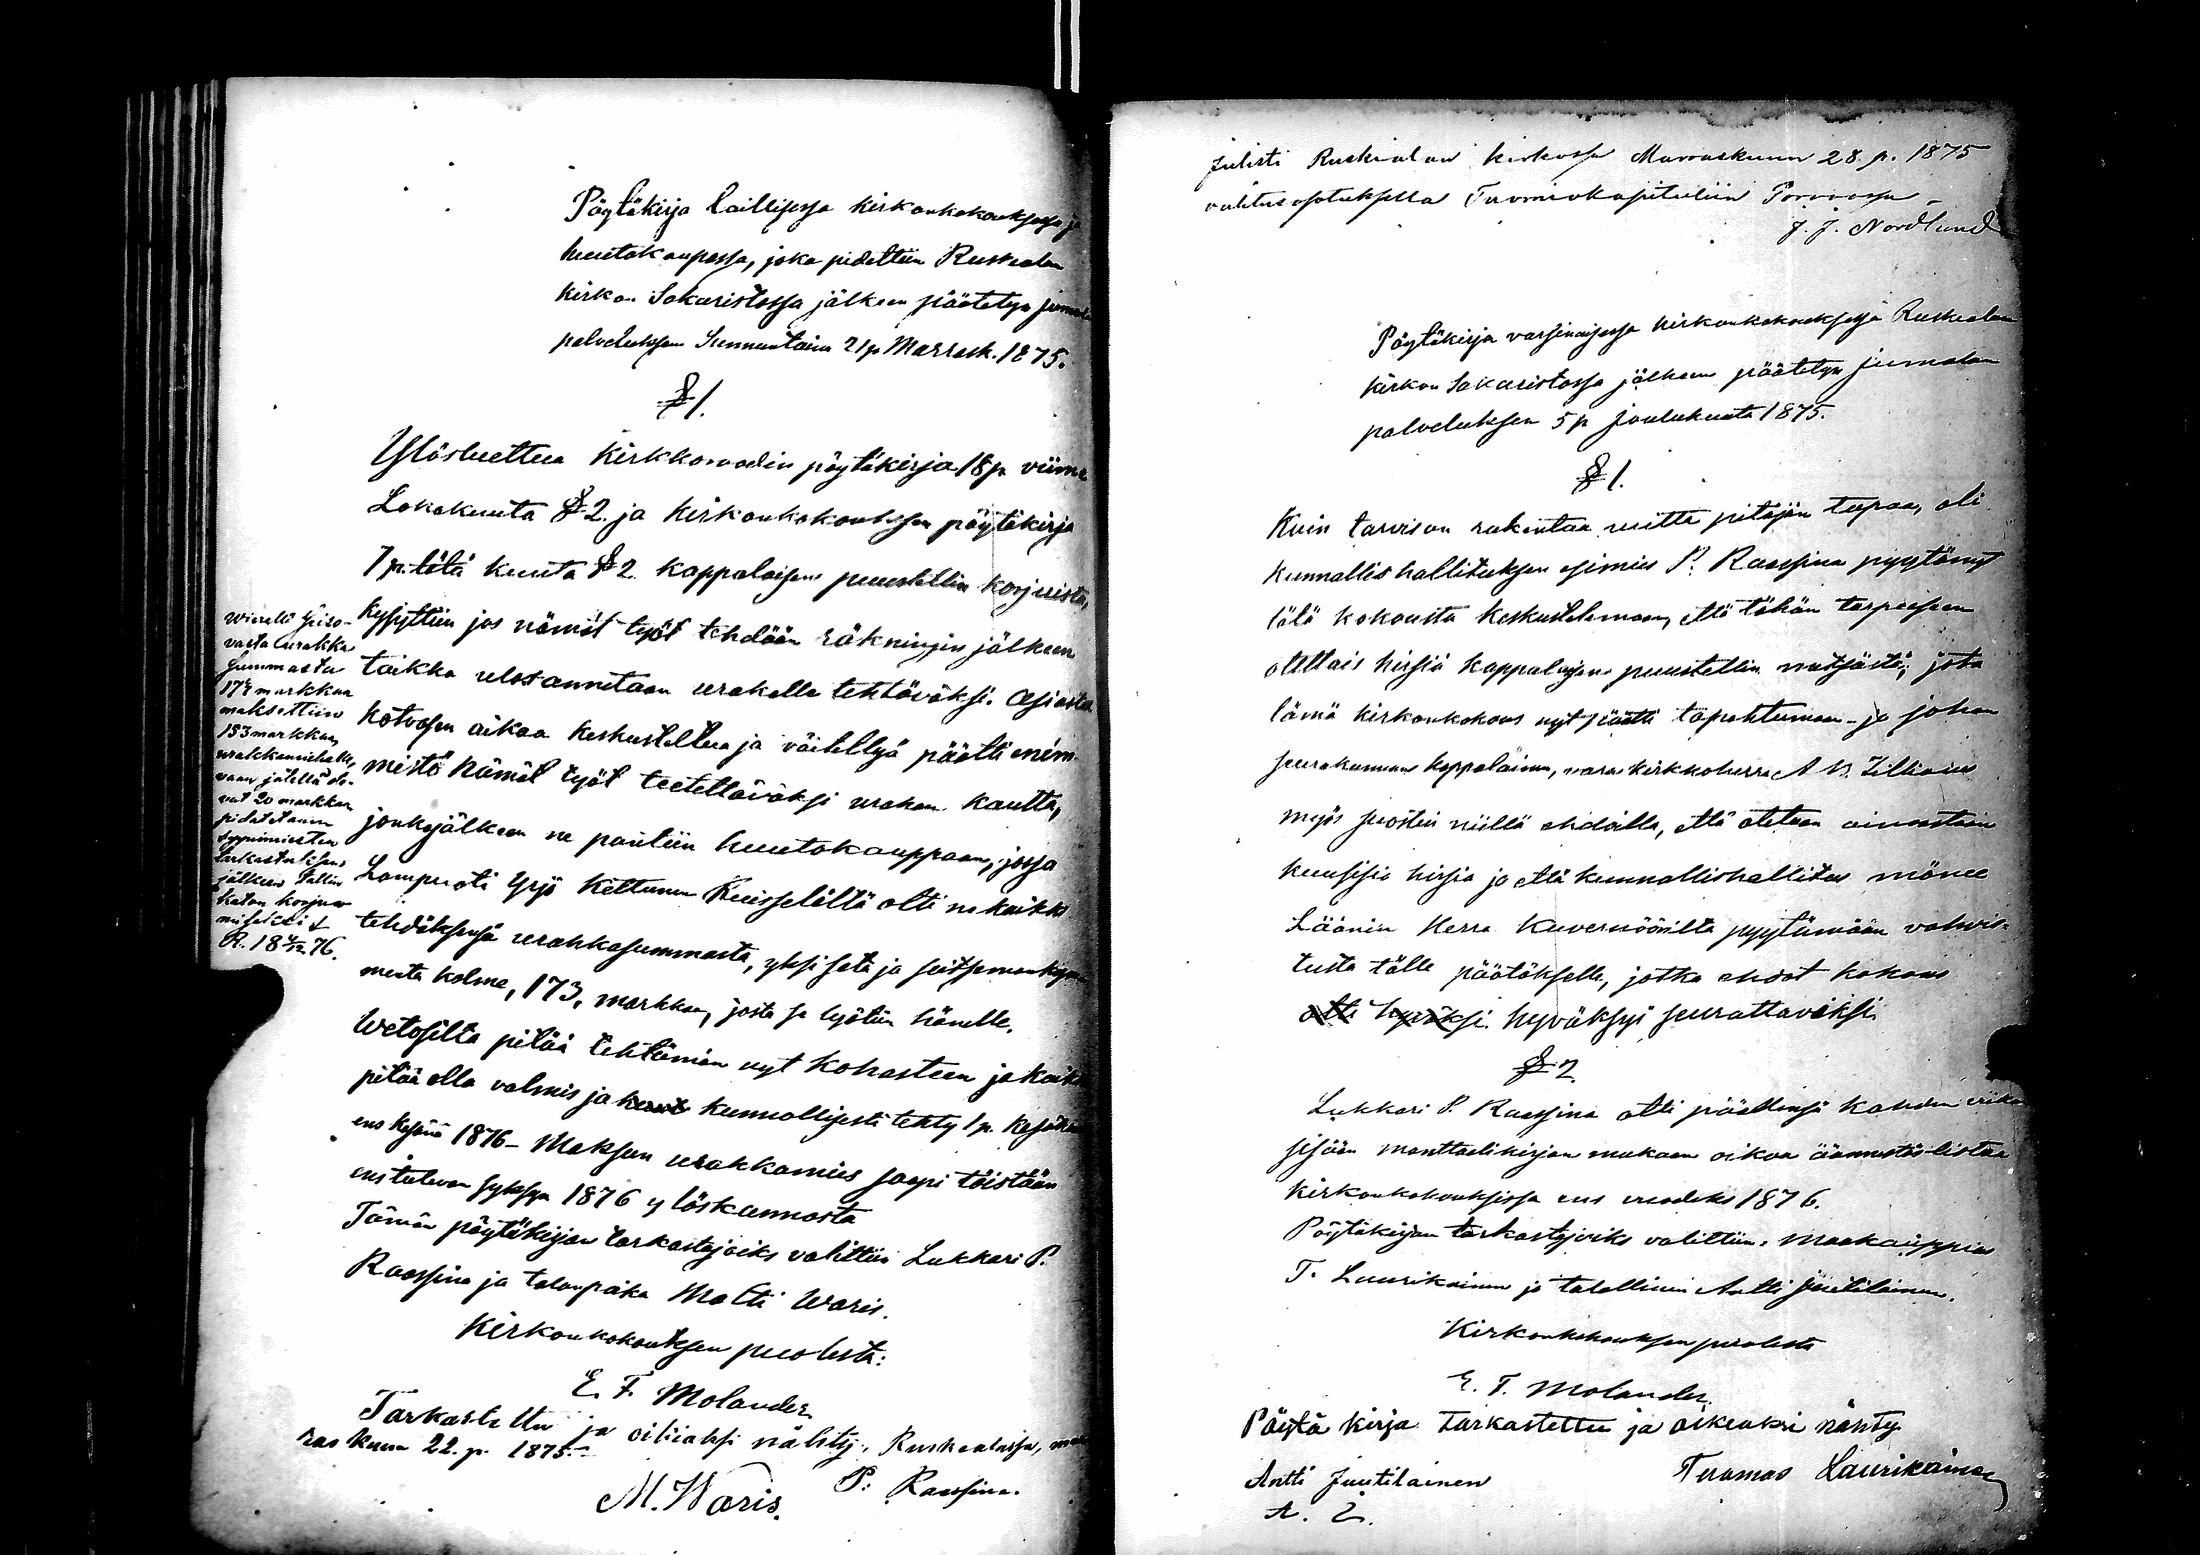 Pöytäkirja laillisessa kirkonkokouksessa ja
huutokaupassa, joka pidettiin Ruskealan
kirkon Sakaristossa jälkeen päätetyn jumalan
palveluksen Sunnuntaina 21 p Marrask. 1875.
§ 1.
Ylösluettua Kirkkoraadin pöytäkirja 18 p. viime
Lokakuuta § 2. ja Kirkonkokouksen pöytäkirja
7 p. tätä kuuta § 2. kappalaisen puustellin korjuista,
kysyttiin jos nämät työt tehdään räkningin jälkeen
taikka ulosannetaan urakalla tehtäväksi. Asiasta
kotvasen aikaa keskusteltua ja väiteltyä päätti enim-
mistö nämät työt teetettäväksi urakan kautta,
jonkajälkeen ne pantiin huutokauppaan, jossa
Lampuoti Yrjö Kettunen Kuisselältä otti ne kaikki
tehdäksensä urakkasummasta, yksi sata ja seitsemänkym-
mentä kolme, 173, markkaa, josta se lyötiin hänelle.
Vetosilta pitää tehtämän nyt kohasteen ja kaikki
pitää olla valmis ja kunnollisesti tehty 1 p. Kesäk.
ens kesänä 1876 – Maksun urakkamies saapi töistään
ens tulevan syksyn 1876 ylöskannosta
Tämän pöytäkirjan tarkastajoiks valittiin Lukkari P.
Raassina ja talonpoika Matti Waris.
Kirkonkokouksen puolesta:
E. F. Molander.
Tarkastettu ja oikiaksi nähty, Ruskealassa, mar
raskuun 22. p. 1875.
P. Raassina.
M. Waris.
vasta urakka
summasta
173 markkaa
maksettiin
153 markkaa
urakkamiehelle,
vaan jälellä ole-
vat 20 markkaa
pidätetään
syynimiesten
tarkastuksen
jälkeen tallin
katon korjuu
R. 18 4/12 76.
Julisti Ruskealan kirkossa Marraskuun 28. p. 1875
valitusosotuksella Tuomiokapituliin Porvoossa
J. J. Nordlund
Pöytäkirja varsinaisessa kirkonkokouksessa Ruskealan
kirkon Sakaristossa jälkeen päätetyn jumalan
palveluksen 5 p Joulukuuta 1875.
§ 1.
Kuin tarvis on rakentaa uutta pitäjän tupaa, oli
Kunnallishallituksen esimies P. Raassina pyytänyt
tätä kokousta keskustelemaan, että tähän tarpeeseen
otettais hirsiä kappalaisen puustellin metsästä, jota
tämä kirkonkokous nyt päätti tapahtumaan – ja johon
seurakunnan kappalainen, varakirkkoherra A W. Zilliacus
myös suostui niillä ehdoilla, että otetaan ainoastaan
kuusisia hirsiä ja että kunnallishallitus mänee
Läänin Herra Kuvernööriltä pyytämään vahvis-
tusta tälle päätökselle, jotka ehdot kokous
otti hyväksi. hyväksyi seurattaviksi.
§ 2.
Lukkari P. Raassina otti päällensä kahden viikon
sisään manttaalikirjan mukaan oikoa äännestöslistaa
kirkonkokouksissa ens vuodeks 1876.
Pöytäkirjan tarkastajoiks valittiin, maakauppias
T. Laurikainen ja talollinen Antti Juutilainen.
Kirkonkokouksen puolesta
E. F. Molander.
Pöytä kirja tarkastettu ja oikeaksi nähty
Antti Juutilainen Tuomas Laurikainen